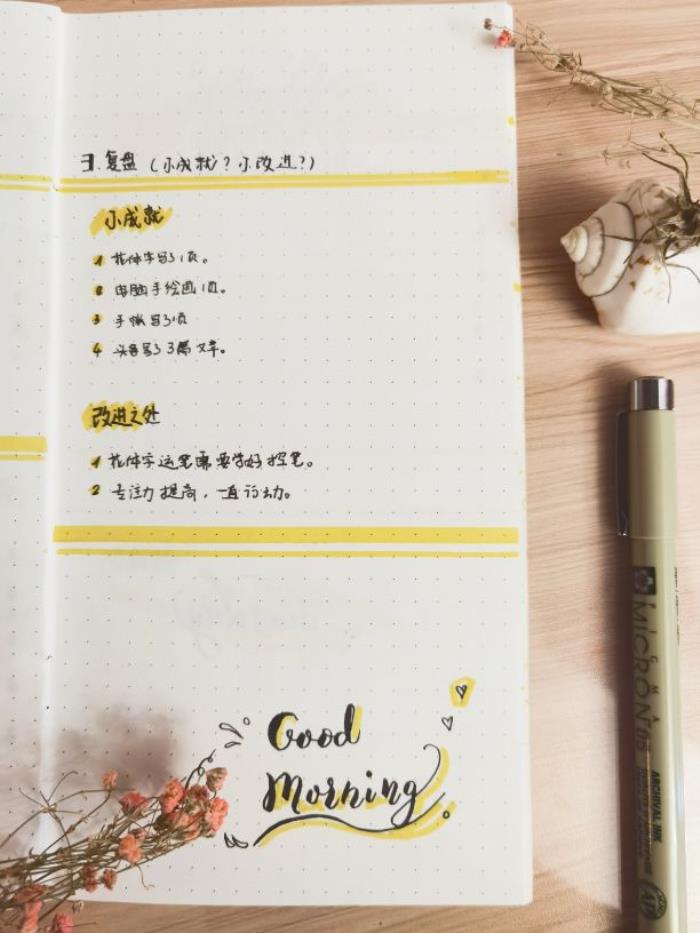 3. 复盘（小成就？小改进？）
小成就
1 花体字写了1页。
2 电脑手绘画1页。
3 手帐写了1页
4 头条写了3篇文章。
改进之处
1 花体字运笔需要学好控笔。
2 专注力提高，一直行动。
Good
Morning
SIGMA
MICRON 05
ARCHIVAL INK